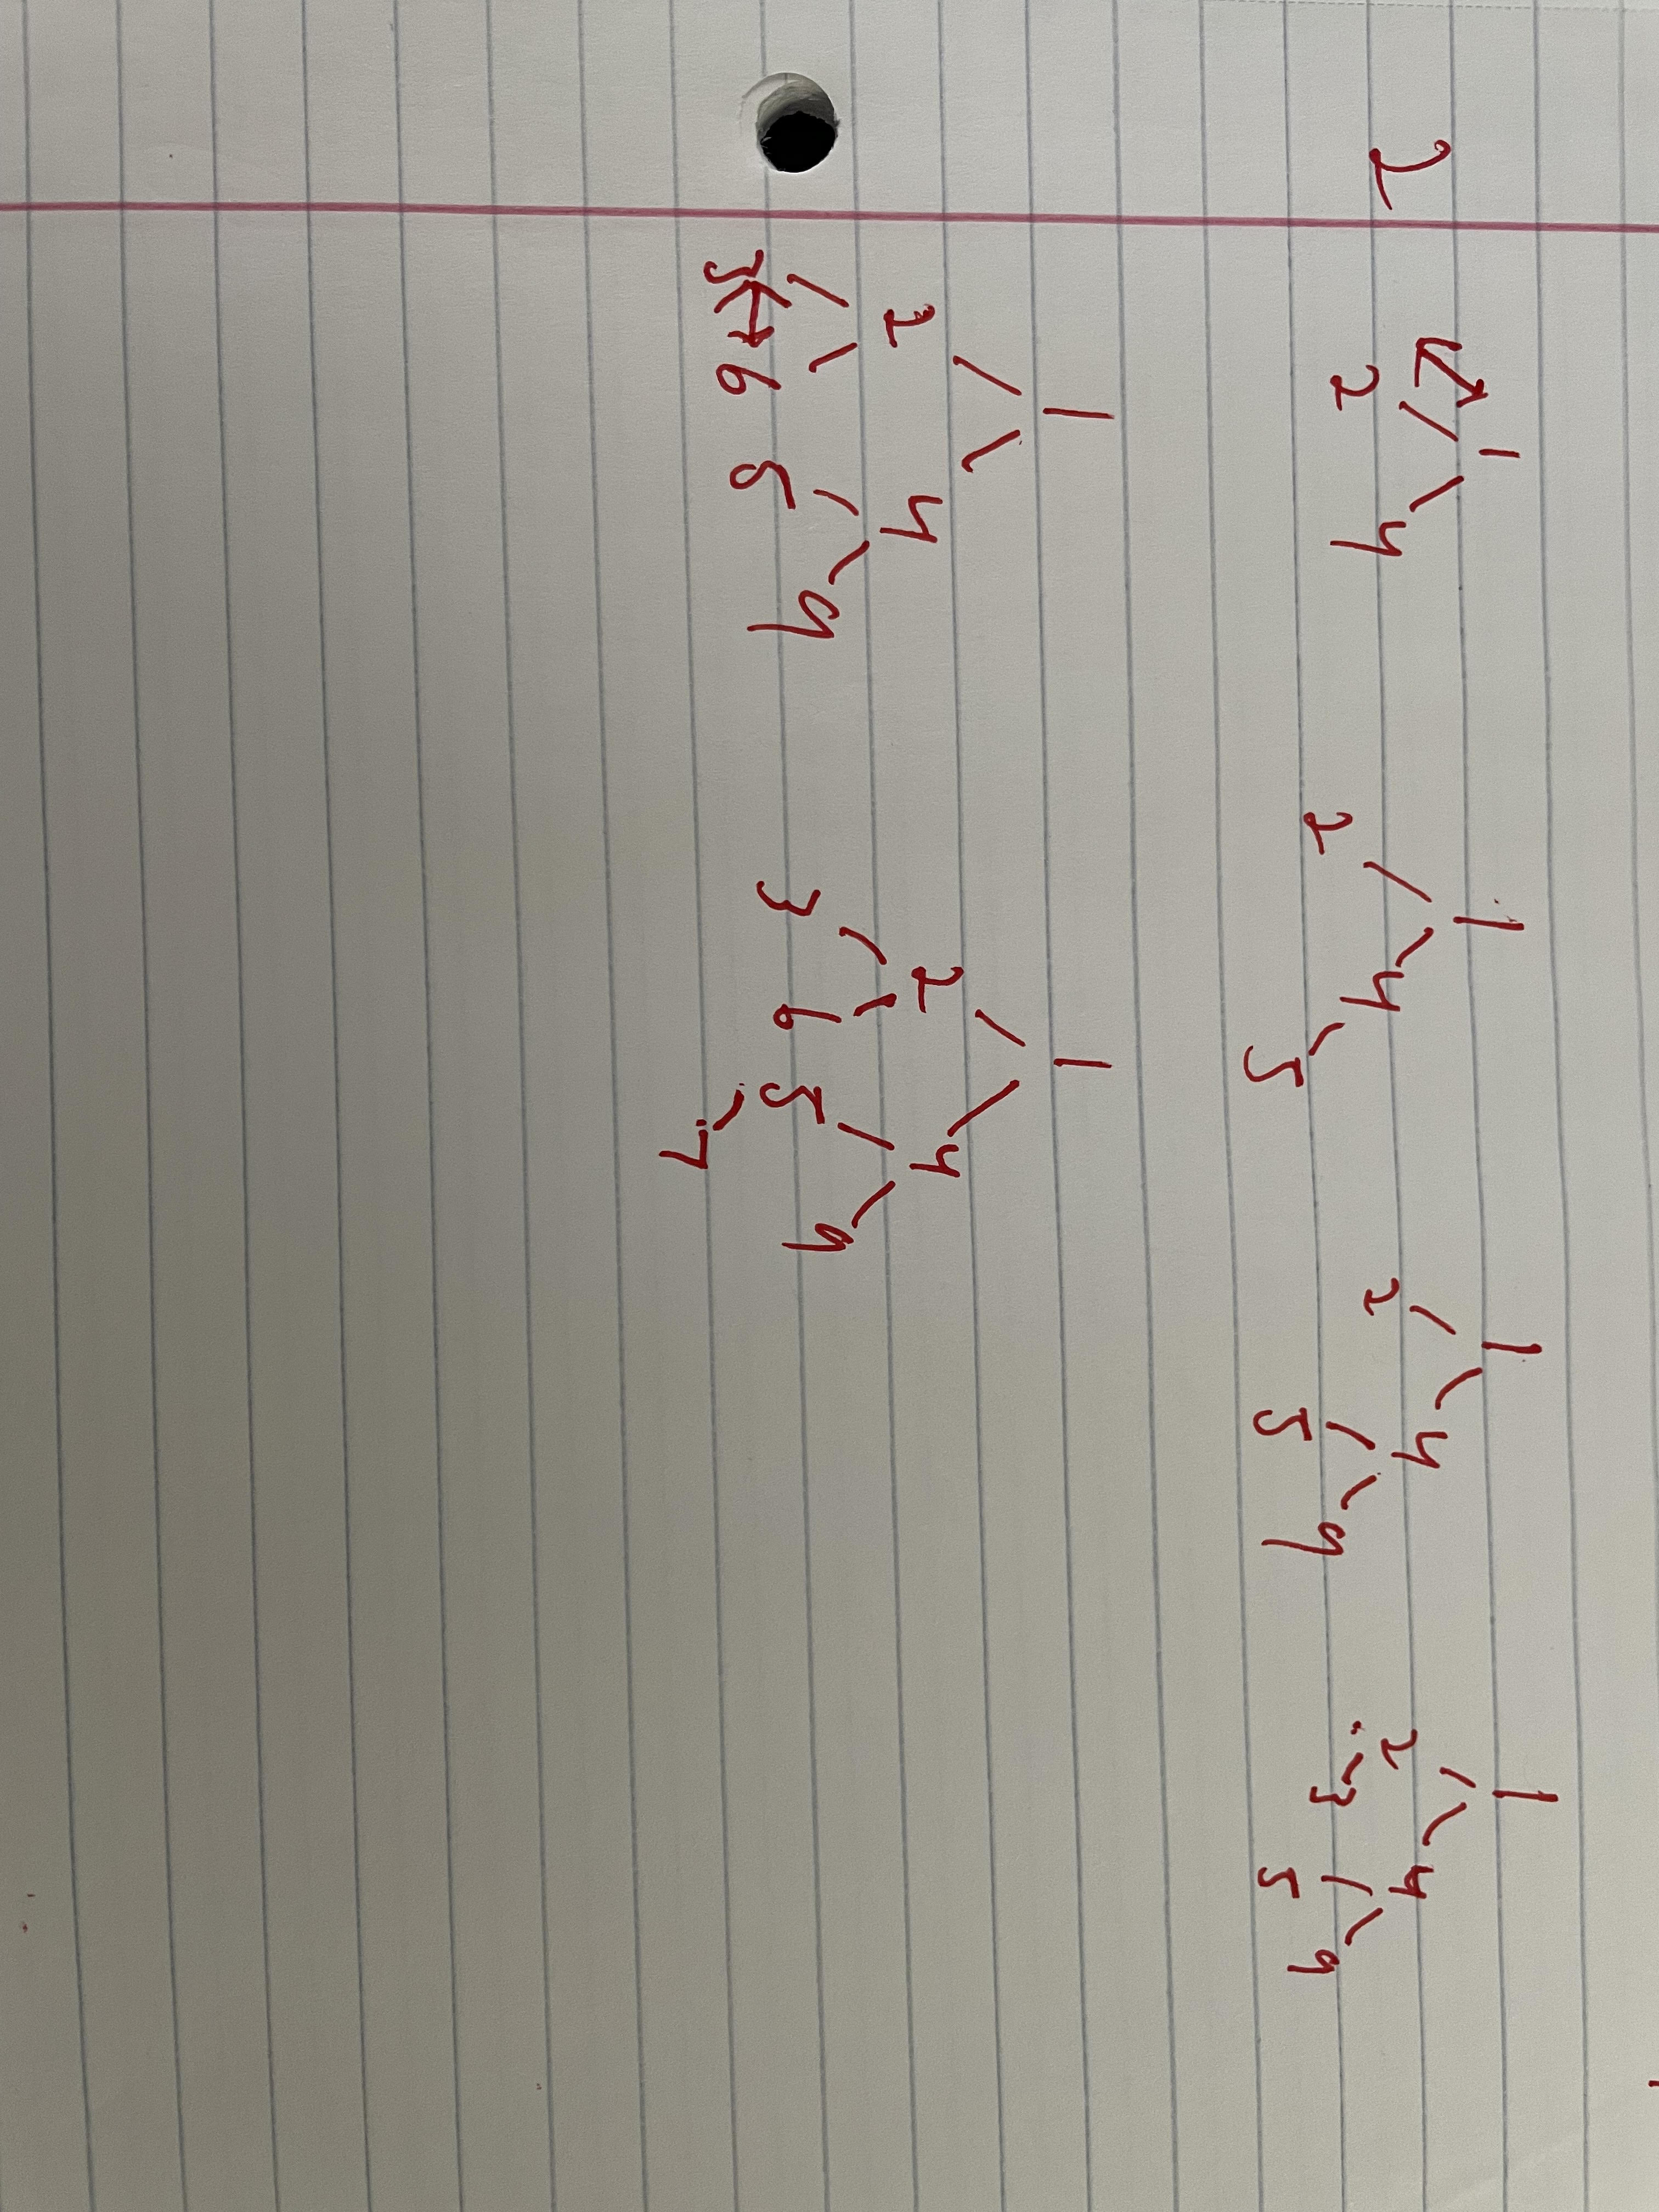 2
1
2 4
1
2 4
5
1
2 4
5 9
1
2 4
3 5 9
1
2 4
3 6 5 9
1
2 4
3 6 5 9
7